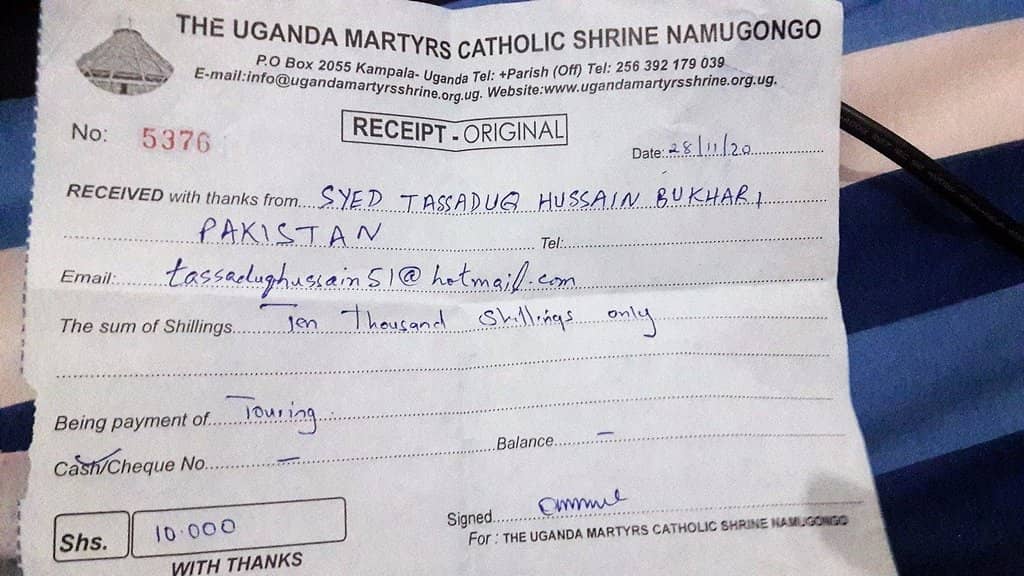 THE UGANDA MARTYRS CATHOLIC SHRINE NAMUGONGO
P.O Box 2055 Kampala- Uganda Tel: +Parish (Off) Tel: 256 392 179 039
E-mail:info@ugandamartyrsshrine.org.ug. Website:www.ugandamartyrsshrine.org.ug.
No: 5376
RECEIPT - ORIGINAL
Date: 28/11/20
RECEIVED with thanks from SYED TASSADUQ HUSSAIN BUKHARI
PAKISTAN Tel:
Email: tassaduqhussain51@hotmail.com
The sum of Shillings Ten Thousand Shillings only
Being payment of Touring
Cash/Cheque No. – Balance –
Shs. 10.000
Signed
For : THE UGANDA MARTYRS CATHOLIC SHRINE NAMUGONGO
WITH THANKS